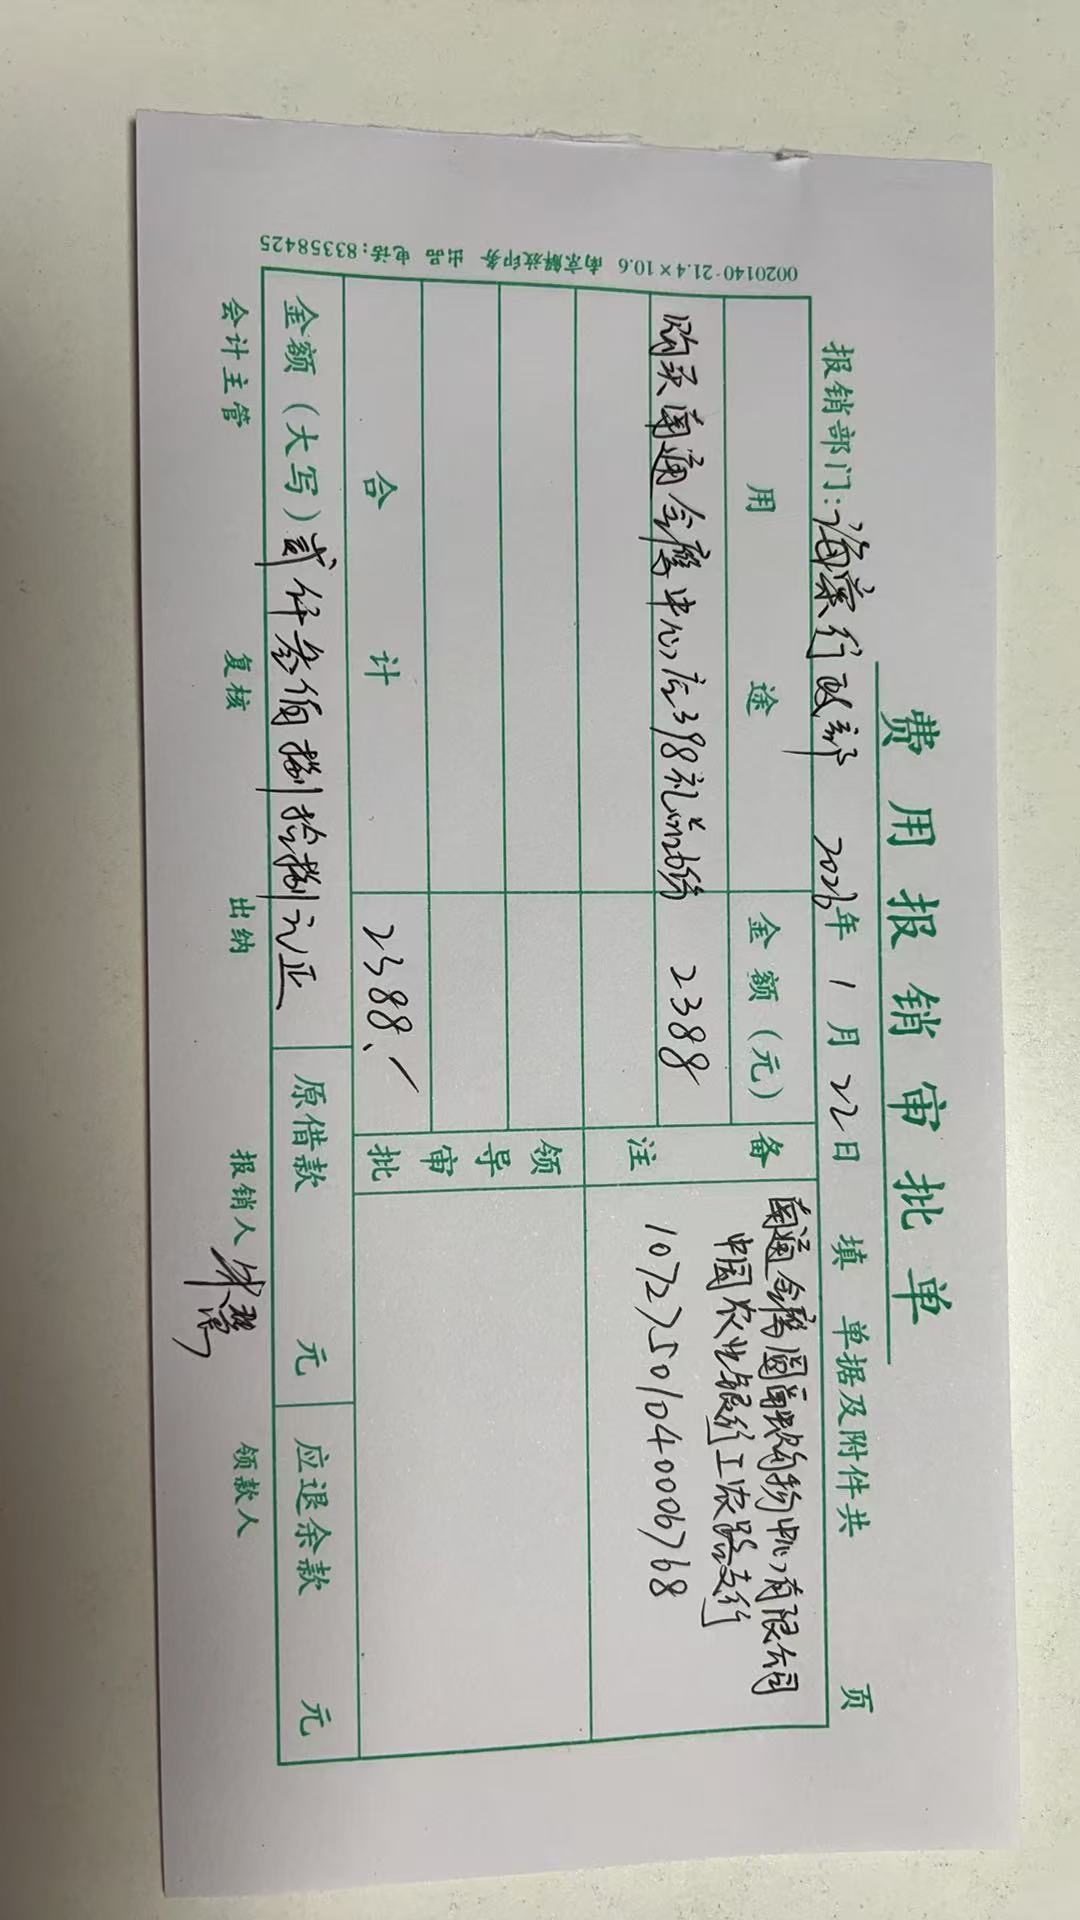 费用报销审批单
报销部门:海棠行政部 2026年1月22日填 单据及附件共 页
用途 金额(元) 备注
购买南通金鹰中心店398礼盒6份 2388
南通金鹰圆融购物中心有限公司
中国农业银行工农路支行
10727501040006768
领导审批
合计 2388.
金额(大写)贰仟叁佰捌拾捌元正 原借款 元 应退余款 元
会计主管 复核 出纳 报销人 领款人
0020140-21.4×10.6 南京解放印务 出品 电话:83358425